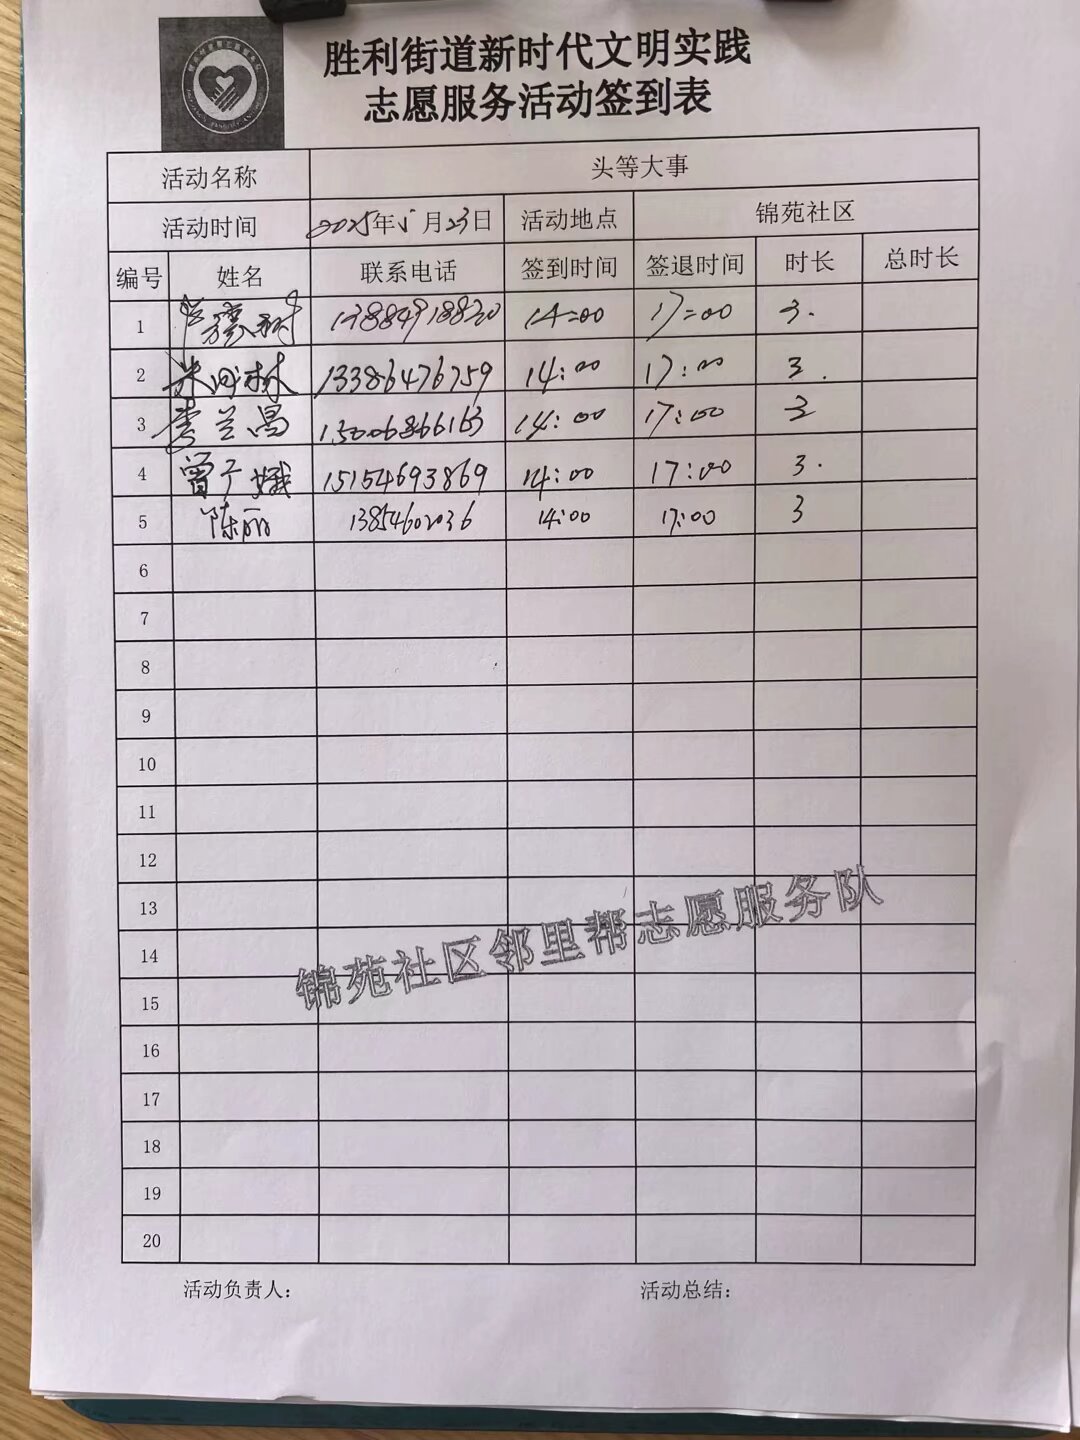 胜利街道新时代文明实践
志愿服务活动签到表
活动名称 头等大事
活动时间 2025年5月23日 活动地点 锦苑社区
编号 姓名 联系电话 签到时间 签退时间 时长 总时长
1 13884918820 14:00 17:00 3.
2 13386476759 14:00 17:00 3.
3 李兰昌 15006866163 14:00 17:00 3
4 曾广娥 15154693869 14:00 17:00 3.
5 陈丽 13854602036 14:00 17:00 3
6
7
8
9
10
11
12
13
14
15
16
17
18
19
20
锦苑社区邻里帮志愿服务队
活动负责人： 活动总结：